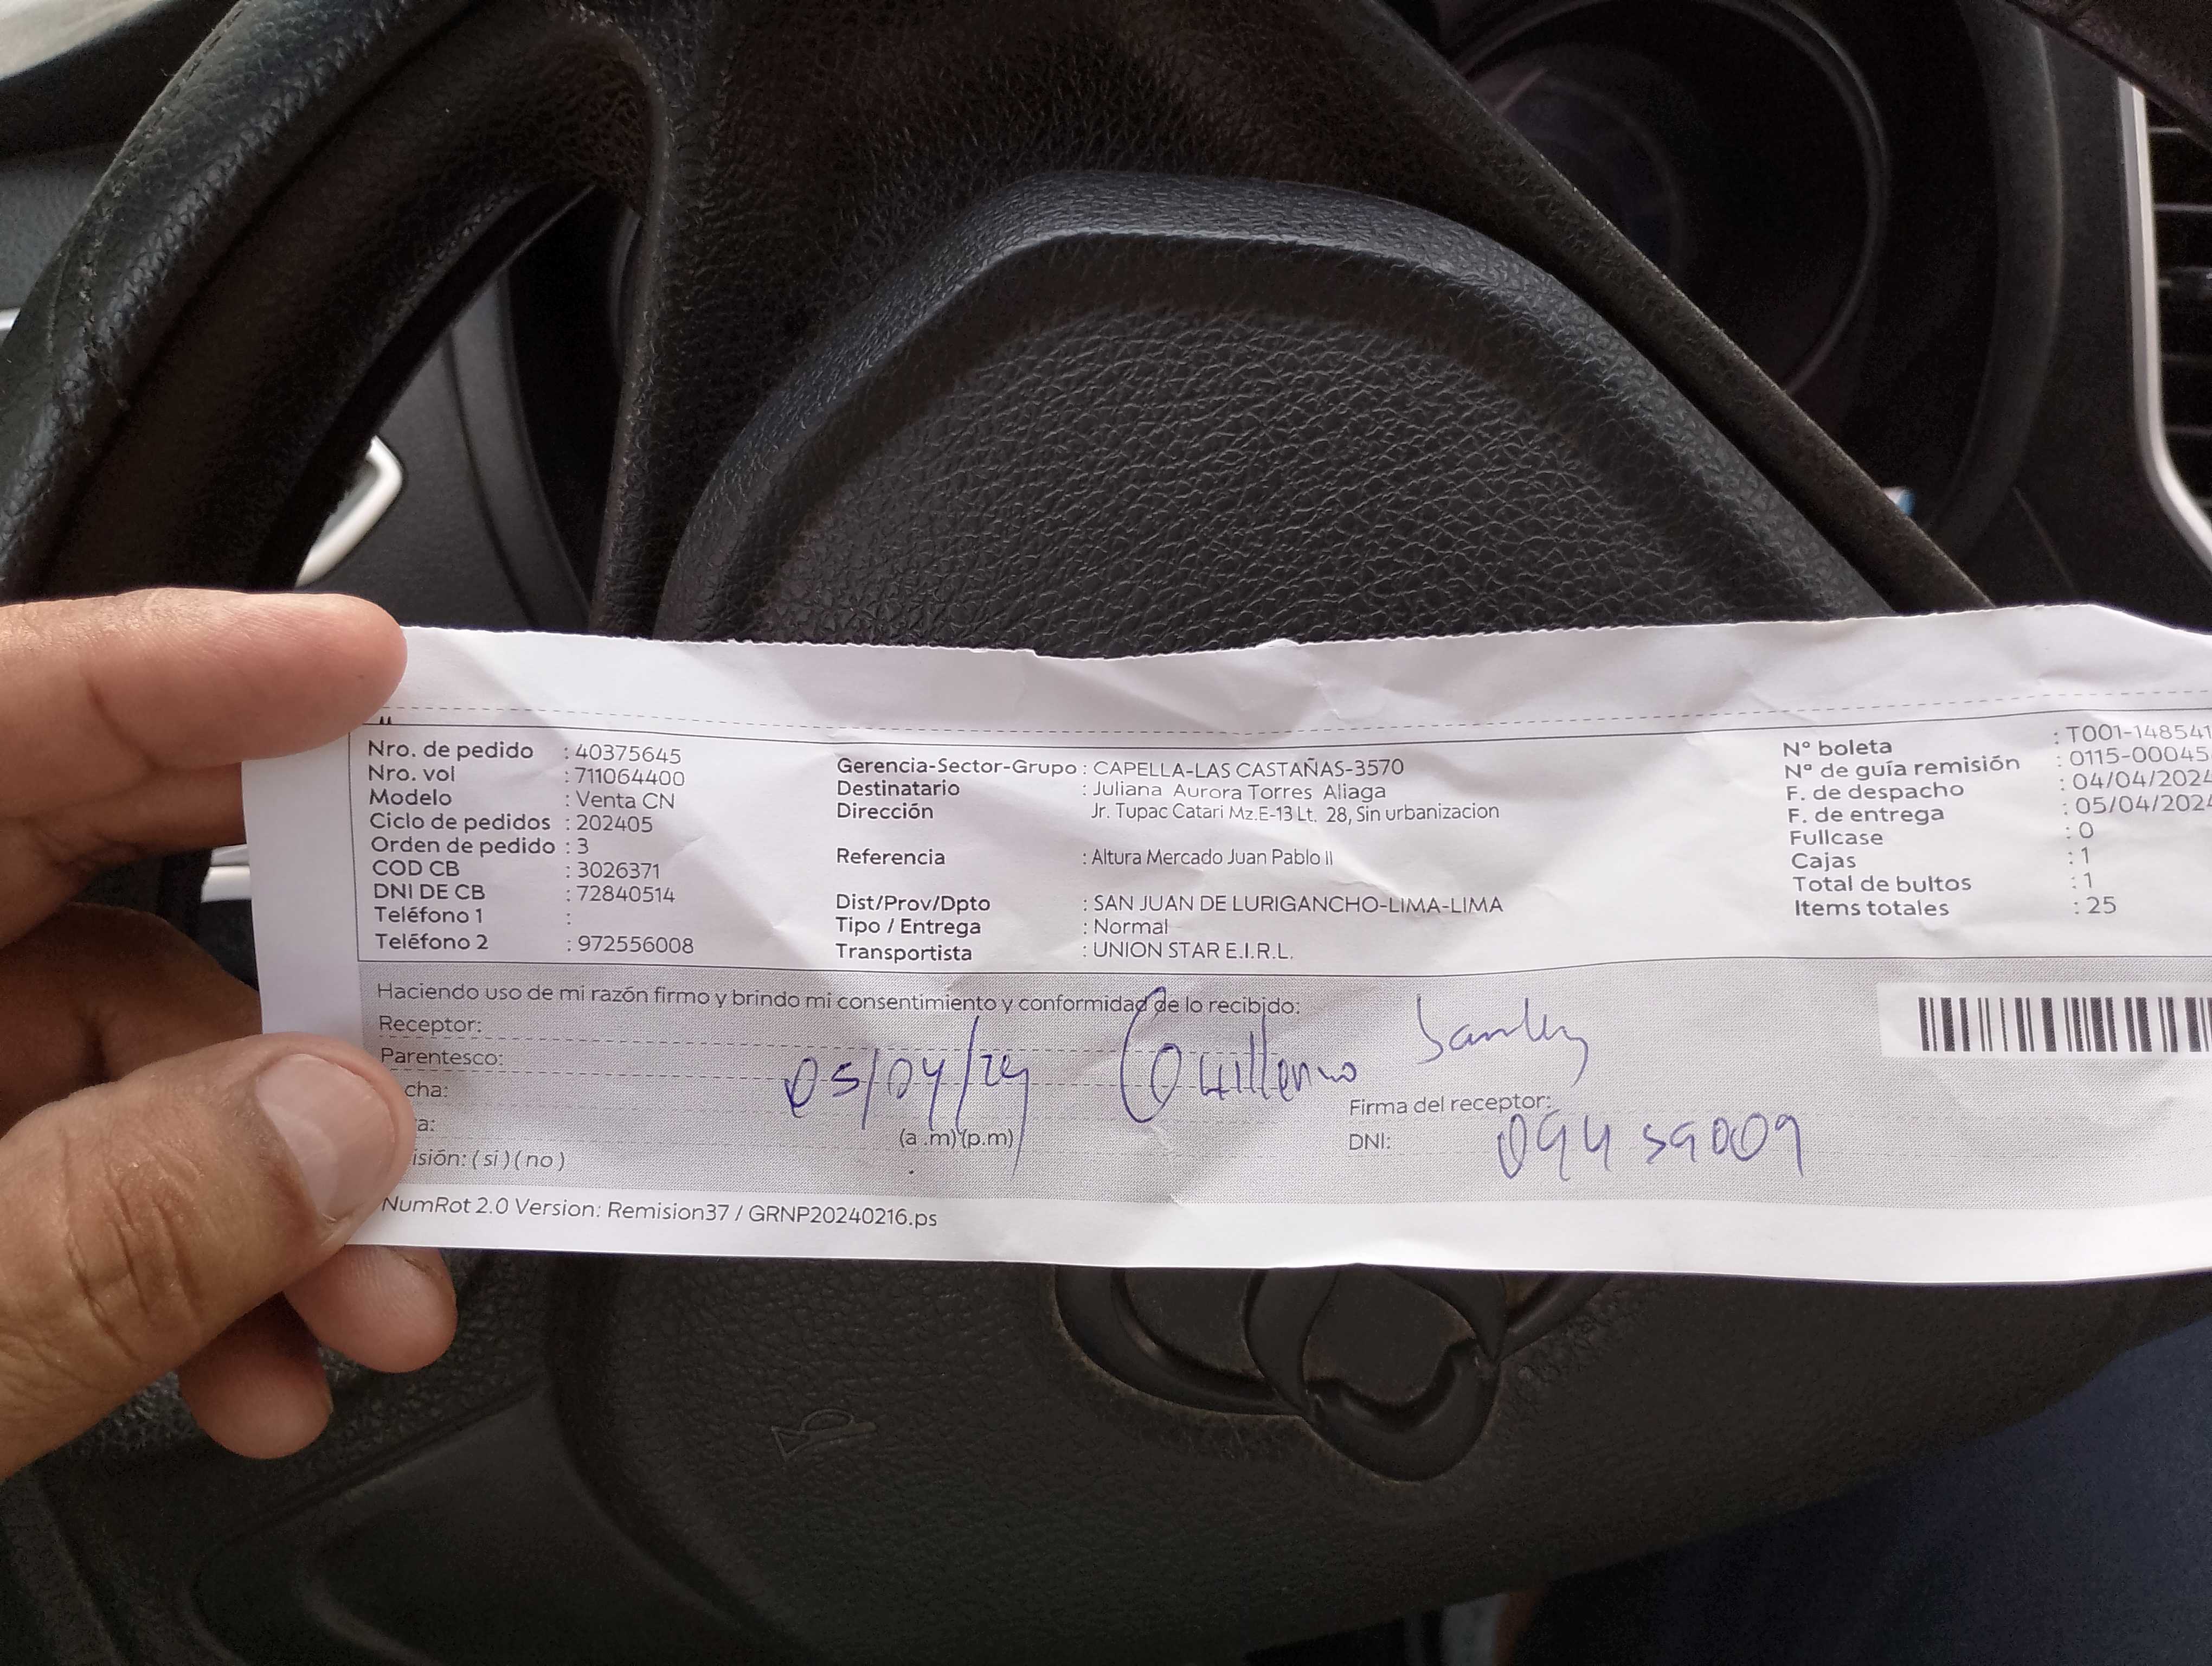 Nro. de pedido : 40375645
Nro. vol : 711064400
Modelo : Venta CN
Ciclo de pedidos : 202405
Orden de pedido : 3
COD CB : 3026371
DNI DE CB : 72840514
Teléfono 1 :
Teléfono 2 : 972556008
Gerencia-Sector-Grupo : CAPELLA-LAS CASTAÑAS-3570
Destinatario : Juliana Aurora Torres Aliaga
Dirección Jr. Tupac Catari Mz.E-13 Lt. 28, Sin urbanizacion
Referencia : Altura Mercado Juan Pablo II
Dist/Prov/Dpto : SAN JUAN DE LURIGANCHO-LIMA-LIMA
Tipo / Entrega : Normal
Transportista : UNION STAR E.I.R.L.
N° boleta : T001-148541
N° de guía remisión : 0115-00045
F. de despacho : 04/04/2024
F. de entrega : 05/04/2024
Fullcase : 0
Cajas : 1
Total de bultos : 1
Items totales : 25
Haciendo uso de mi razón firmo y brindo mi consentimiento y conformidad de lo recibido:
Receptor:
Parentesco:
cha: 05/04/24 Guillermo
a: (a .m) (p.m)
isión: ( si ) ( no )
Firma del receptor:
DNI: 09459009
NumRot 2.0 Version: Remision37 / GRNP20240216.ps